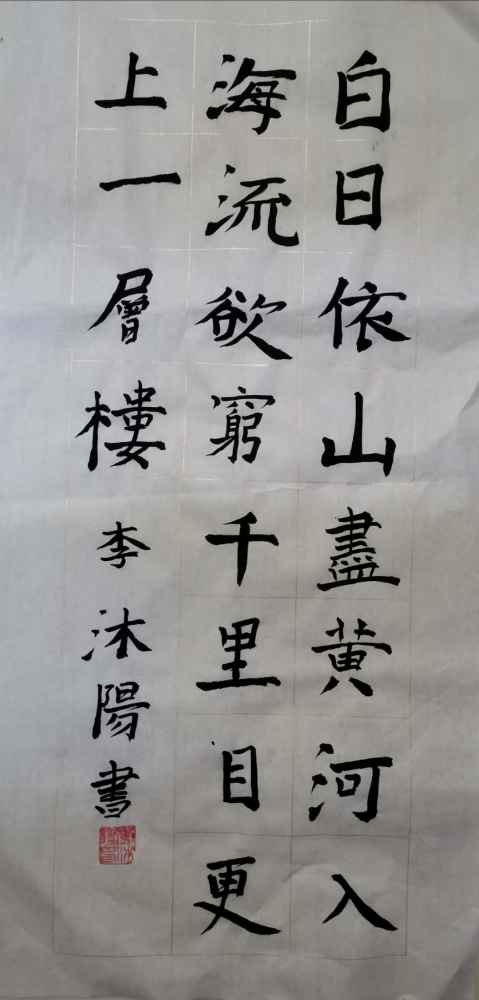 白日依山盡黄河入
海流欲窮千里目更
上一層樓李沐陽書